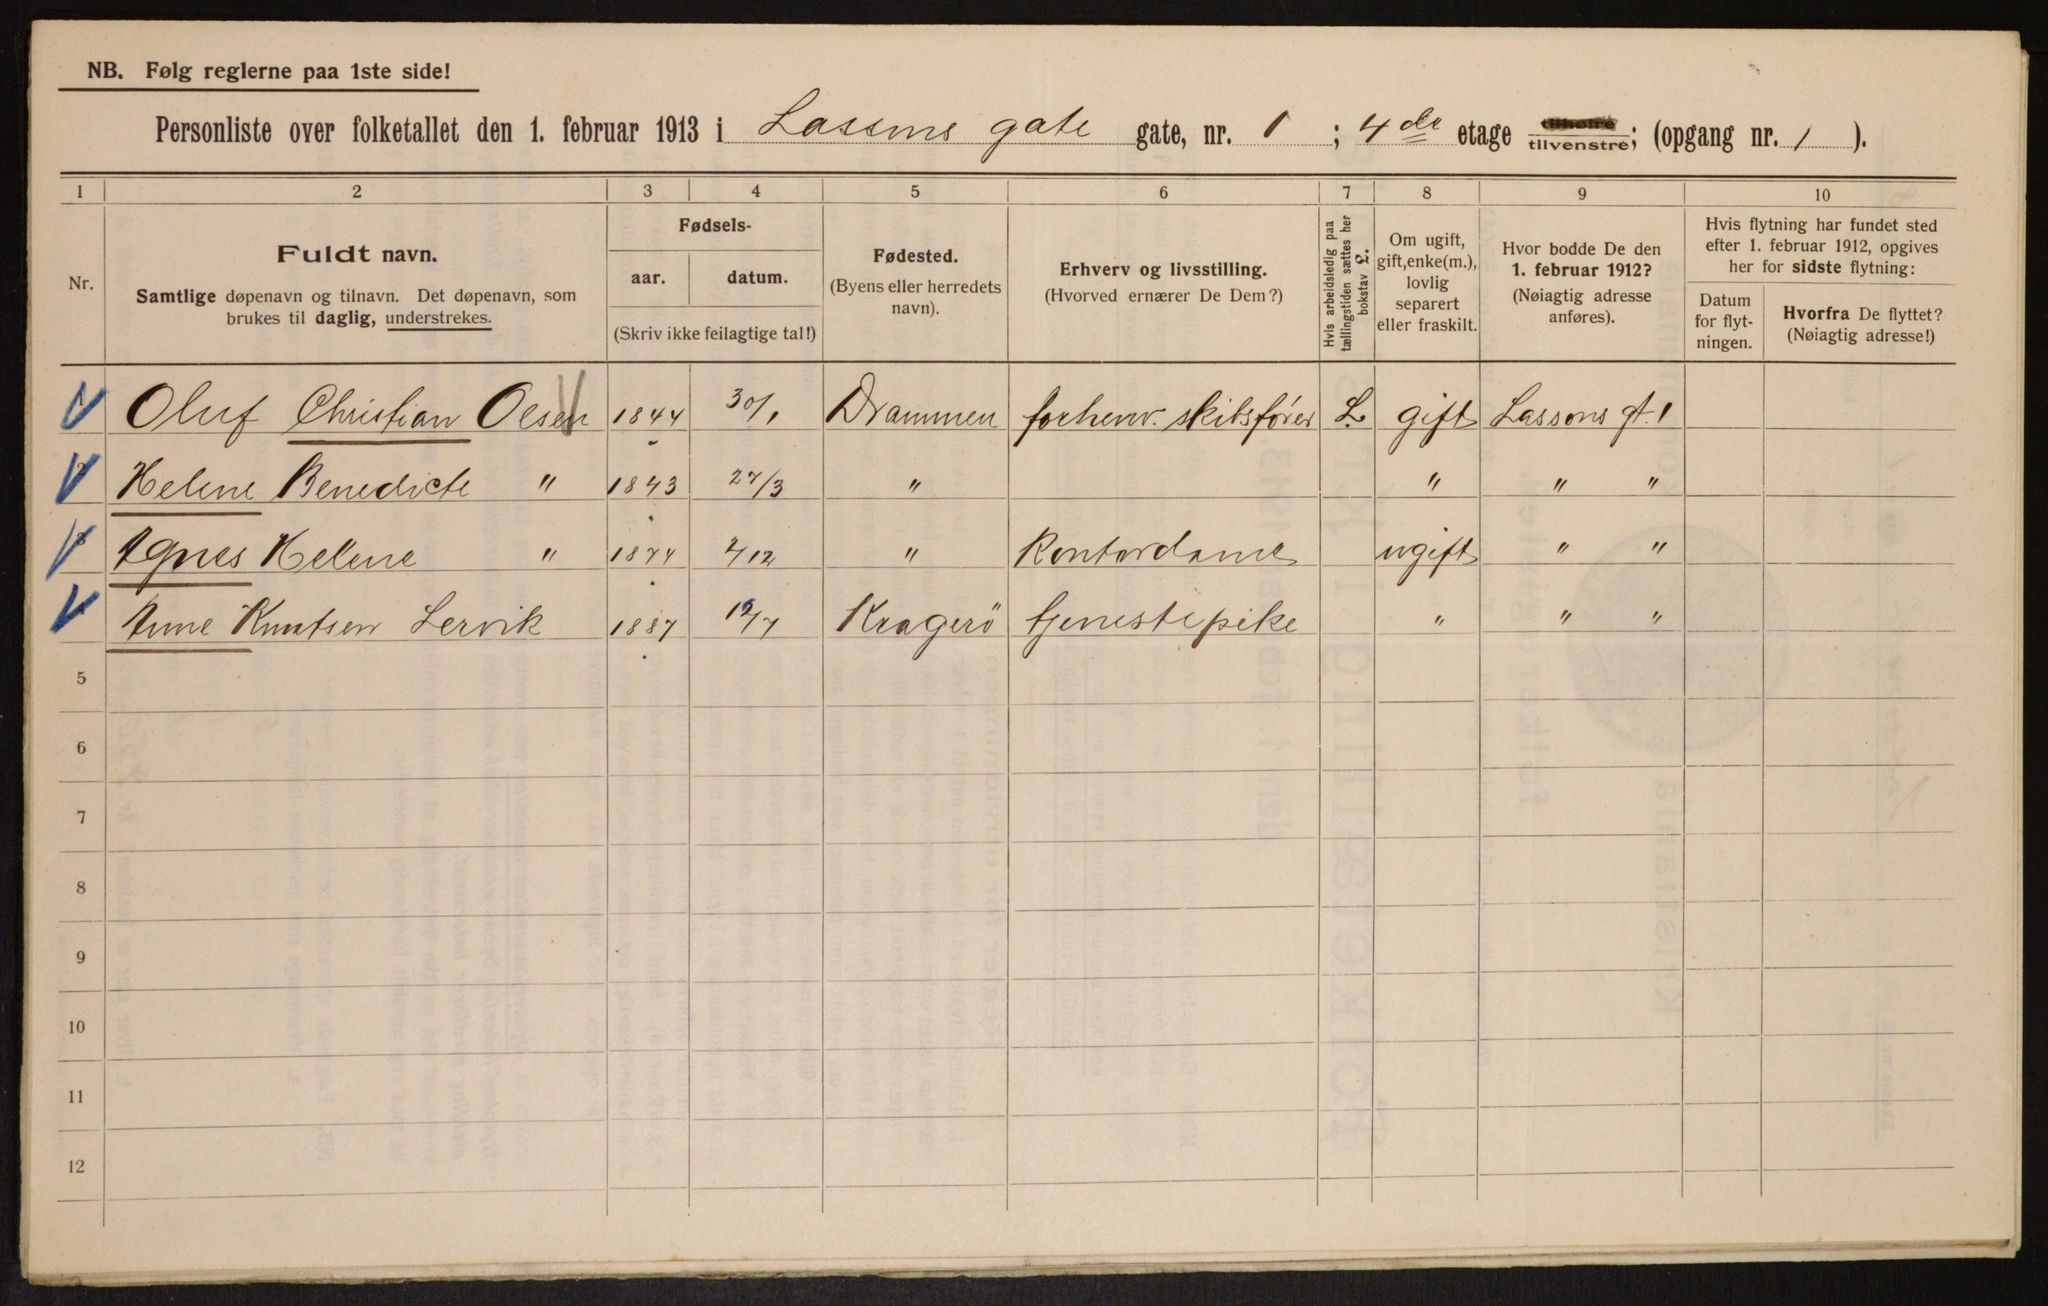 NB. Følg reglerne paa 1ste side!
Personliste over folketallet den 1. februar 1913 i Lassons gate gate, nr. 1; 4de etage tilhøire tilvenstre; (opgang nr. 1).
1 2 3 4 5 6 7 8 9 10
Nr.
Fuldt navn.
Samtlige døpenavn og tilnavn. Det døpenavn, som
brukes til daglig, understrekes.
Fødsels-
aar. datum.
(Skriv ikke feilagtige tal!)
Fødested.
(Byens eller herredets
navn).
Erhverv og livsstilling.
(Hvorved ernærer De Dem?)
Hvis arbeidsledig paa
tællingstiden sættes her
bokstav L.
Om ugift,
gift, enke(m.),
lovlig
separert
eller fraskilt.
Hvor bodde De den
1. februar 1912?
(Nøiagtig adresse
anføres).
Hvis flytning har fundet sted
efter 1. februar 1912, opgives
her for sidste flytning:
Datum
for flyt-
ningen.
Hvorfra De flyttet?
(Nøiagtig adresse!)
1 Oluf Christian Olsen 1844 30/1 Drammen forhenv. skibsfører L. gift Lassons gt. 1
2 Helene Benedicte " 1843 27/3 " " " "
3 Agnes Helene " 1874 2/12 " Kontordame ugift " "
4 Anne Knutsen Lervik 1887 12/7 Kragerö tjenestepike " " "
5
6
7
8
9
10
11
12